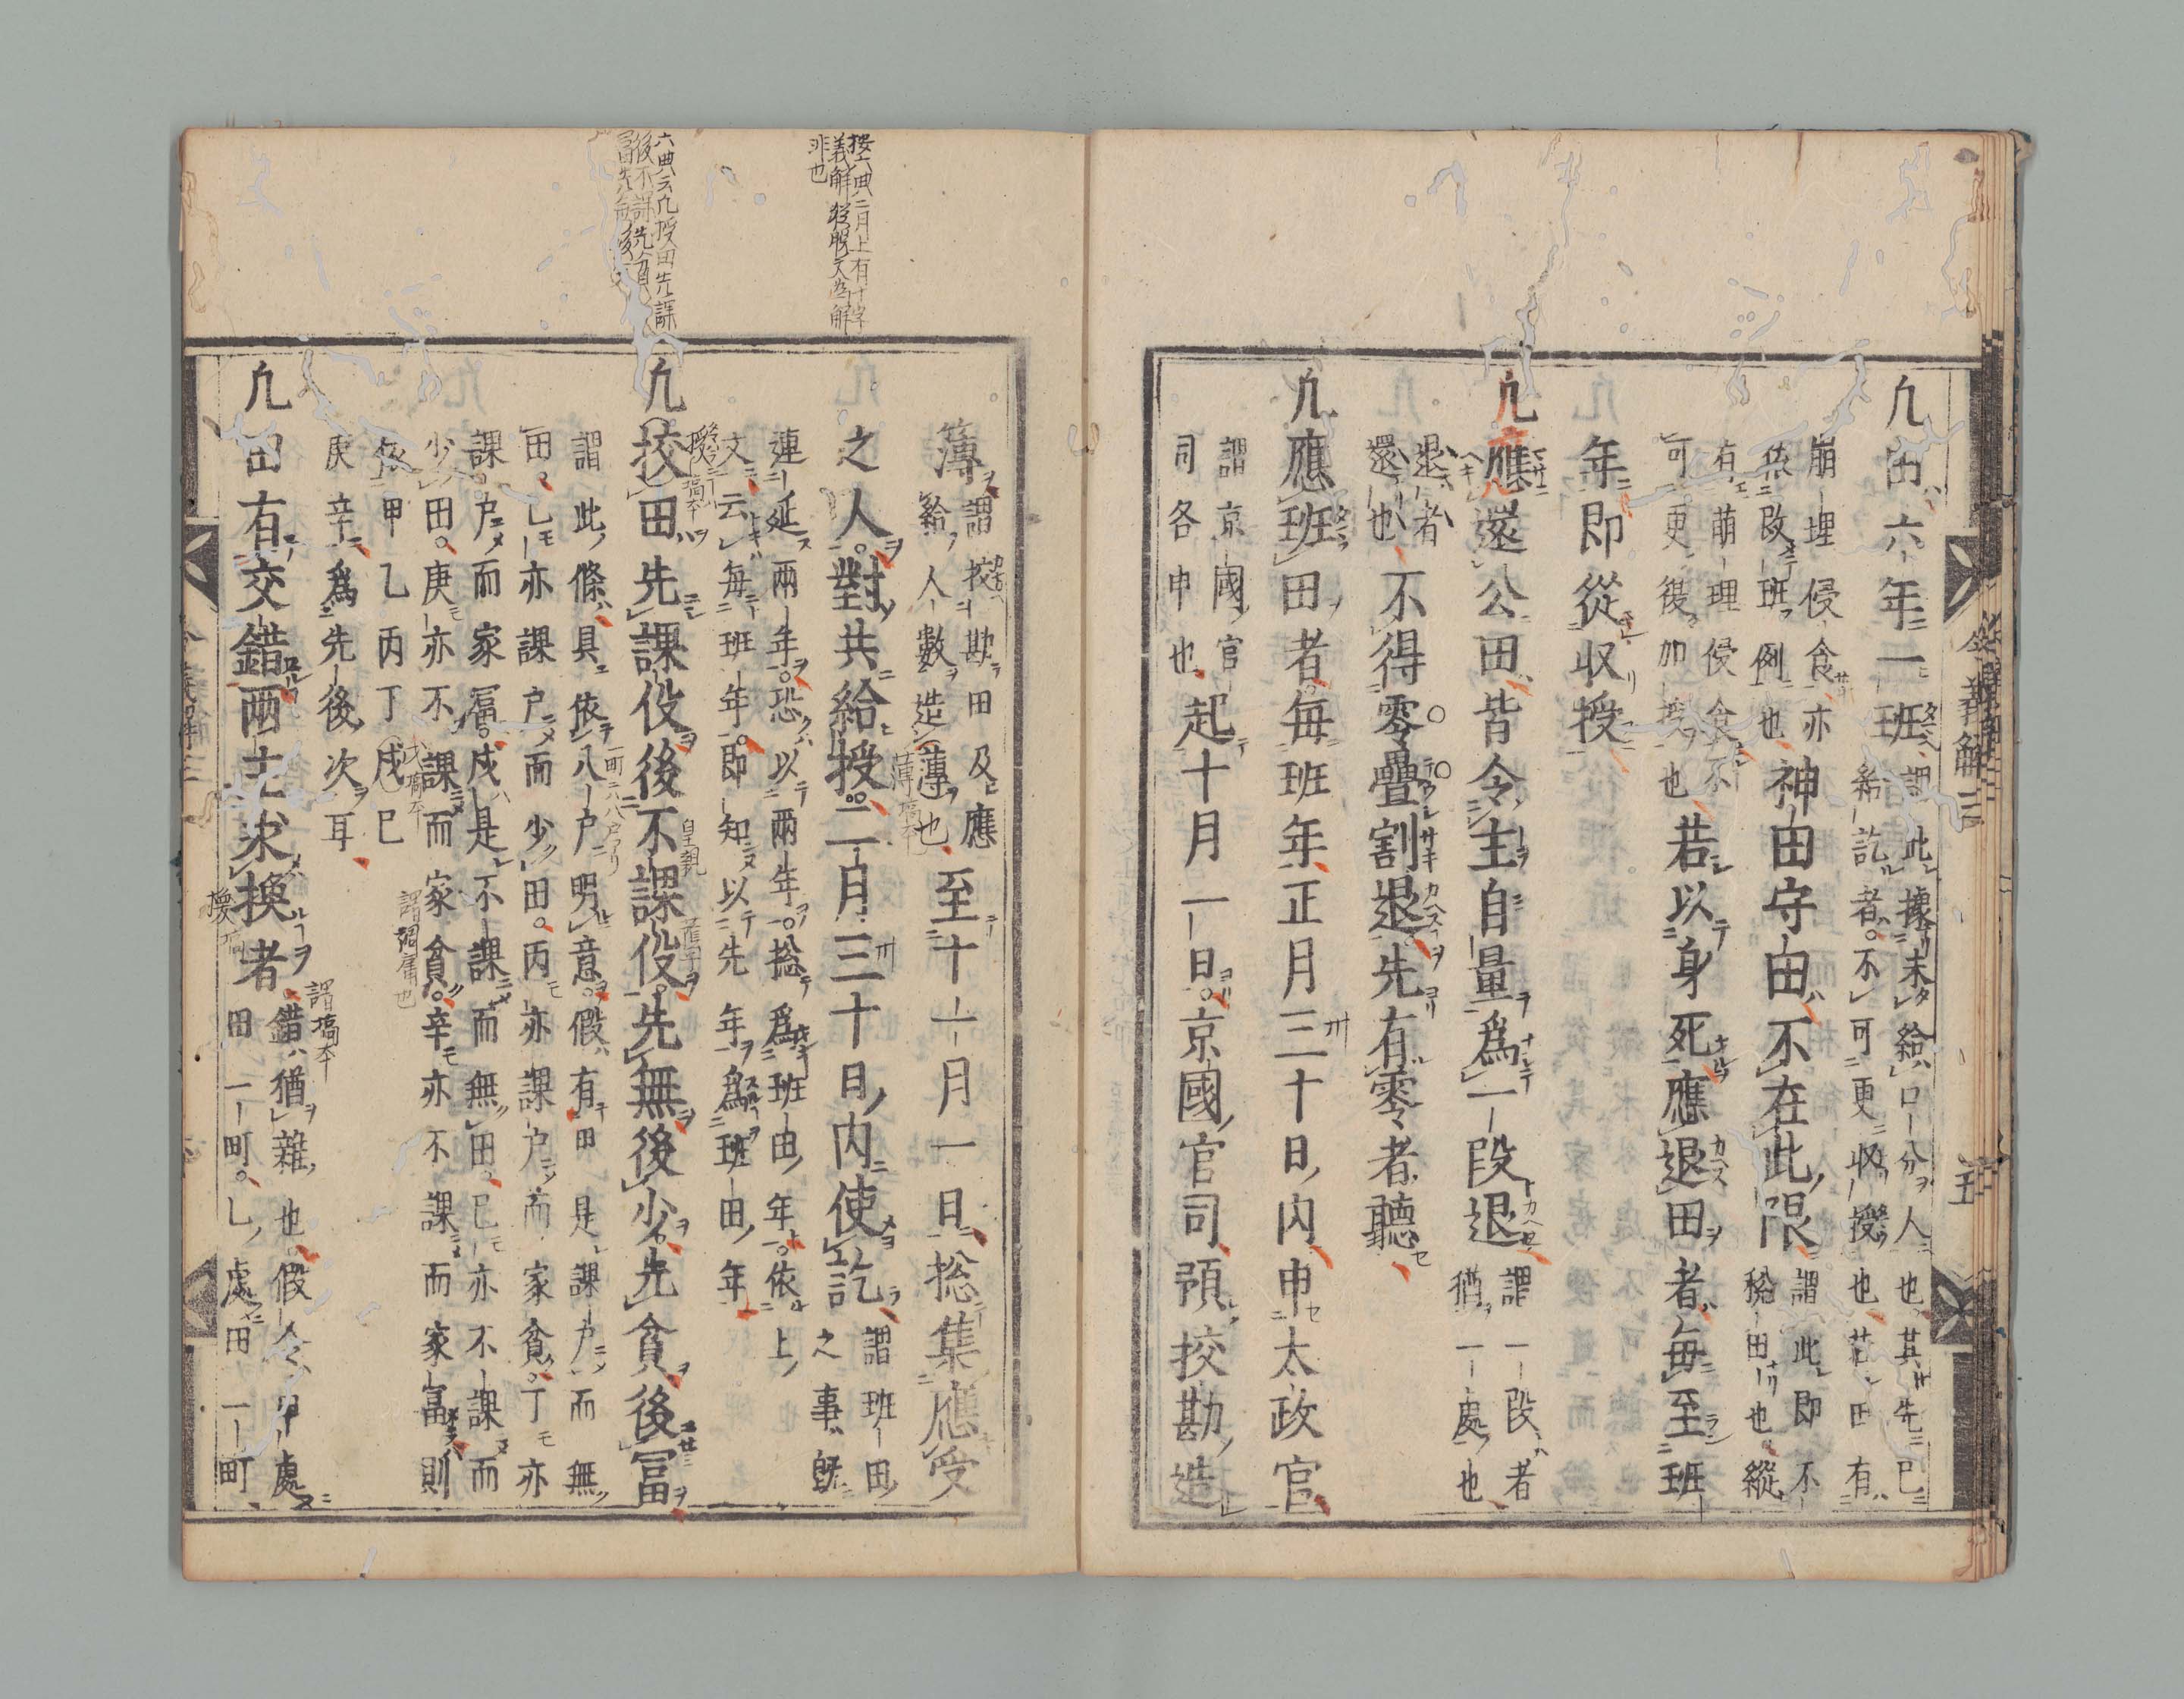 令義解三
五
凢田六年一班謂此據未給口分人也其先已
給訖者不可更收授也若田有
崩埋侵食亦
依改班例也神田寺田不在此限謂此即不
税田也縱
有崩埋侵食不
可更復加授也若以身死應退田者毎至班
年即從収授
凢應還公田皆令主自量爲一段退謂一段者
猶一處也
不得零疊割退先有零者聽
退者
還也
凢應班田者毎班年正月三十日内申太政官
謂京國官
司各申也起十月一日京國官司預挍勘造
簿謂挍勘田及應
給人數造簿也至十一月一日捴集應受
之人對共給授二月三十日内使訖謂班田
之事既
連延兩年恐以兩年捴爲班田年依上
文云毎班年即知以先年爲班田年
凢挍田先課役後不課役先無後少先貧後冨
謂此條具依八戸明意假有田是課戸而無
田乙亦課戸而少田丙亦課戸而家貧丁亦
課戸而家冨戊是不課而無田巳亦不課而
少田庚亦不課而家貧辛亦不課而家冨則
依甲乙丙丁戊巳
庚辛爲先後次耳
凢田有交錯兩主求換者錯猶雜也假令甲處
田一町乙處田一町
按六典二月上有十字
義解從脱文爲解
非也
六典云凢授田先課
後不課先貧後
冨先無後少